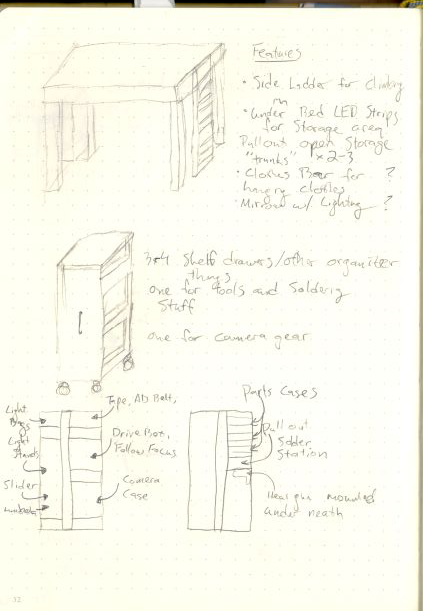 Features
• Side Ladder for climbing
• Under Bed LED Strips
for Storage area
Pullout open Storage
"trunks" 1x2-3
• Clothes Bar for ?
hanging clothes
• Mirror w/ Lighting ?
3x4 Shelf drawers/other organizer
things
one for tools and Soldering
Stuff
one for camera gear
Light
Bags
Light
Stands
Slider
Tape, AD Belt,
DriveBox,
Follow Focus
Camera
Case
Parts Cases
Pull out
Solder
Station
Heat gun mounted
under neath
32